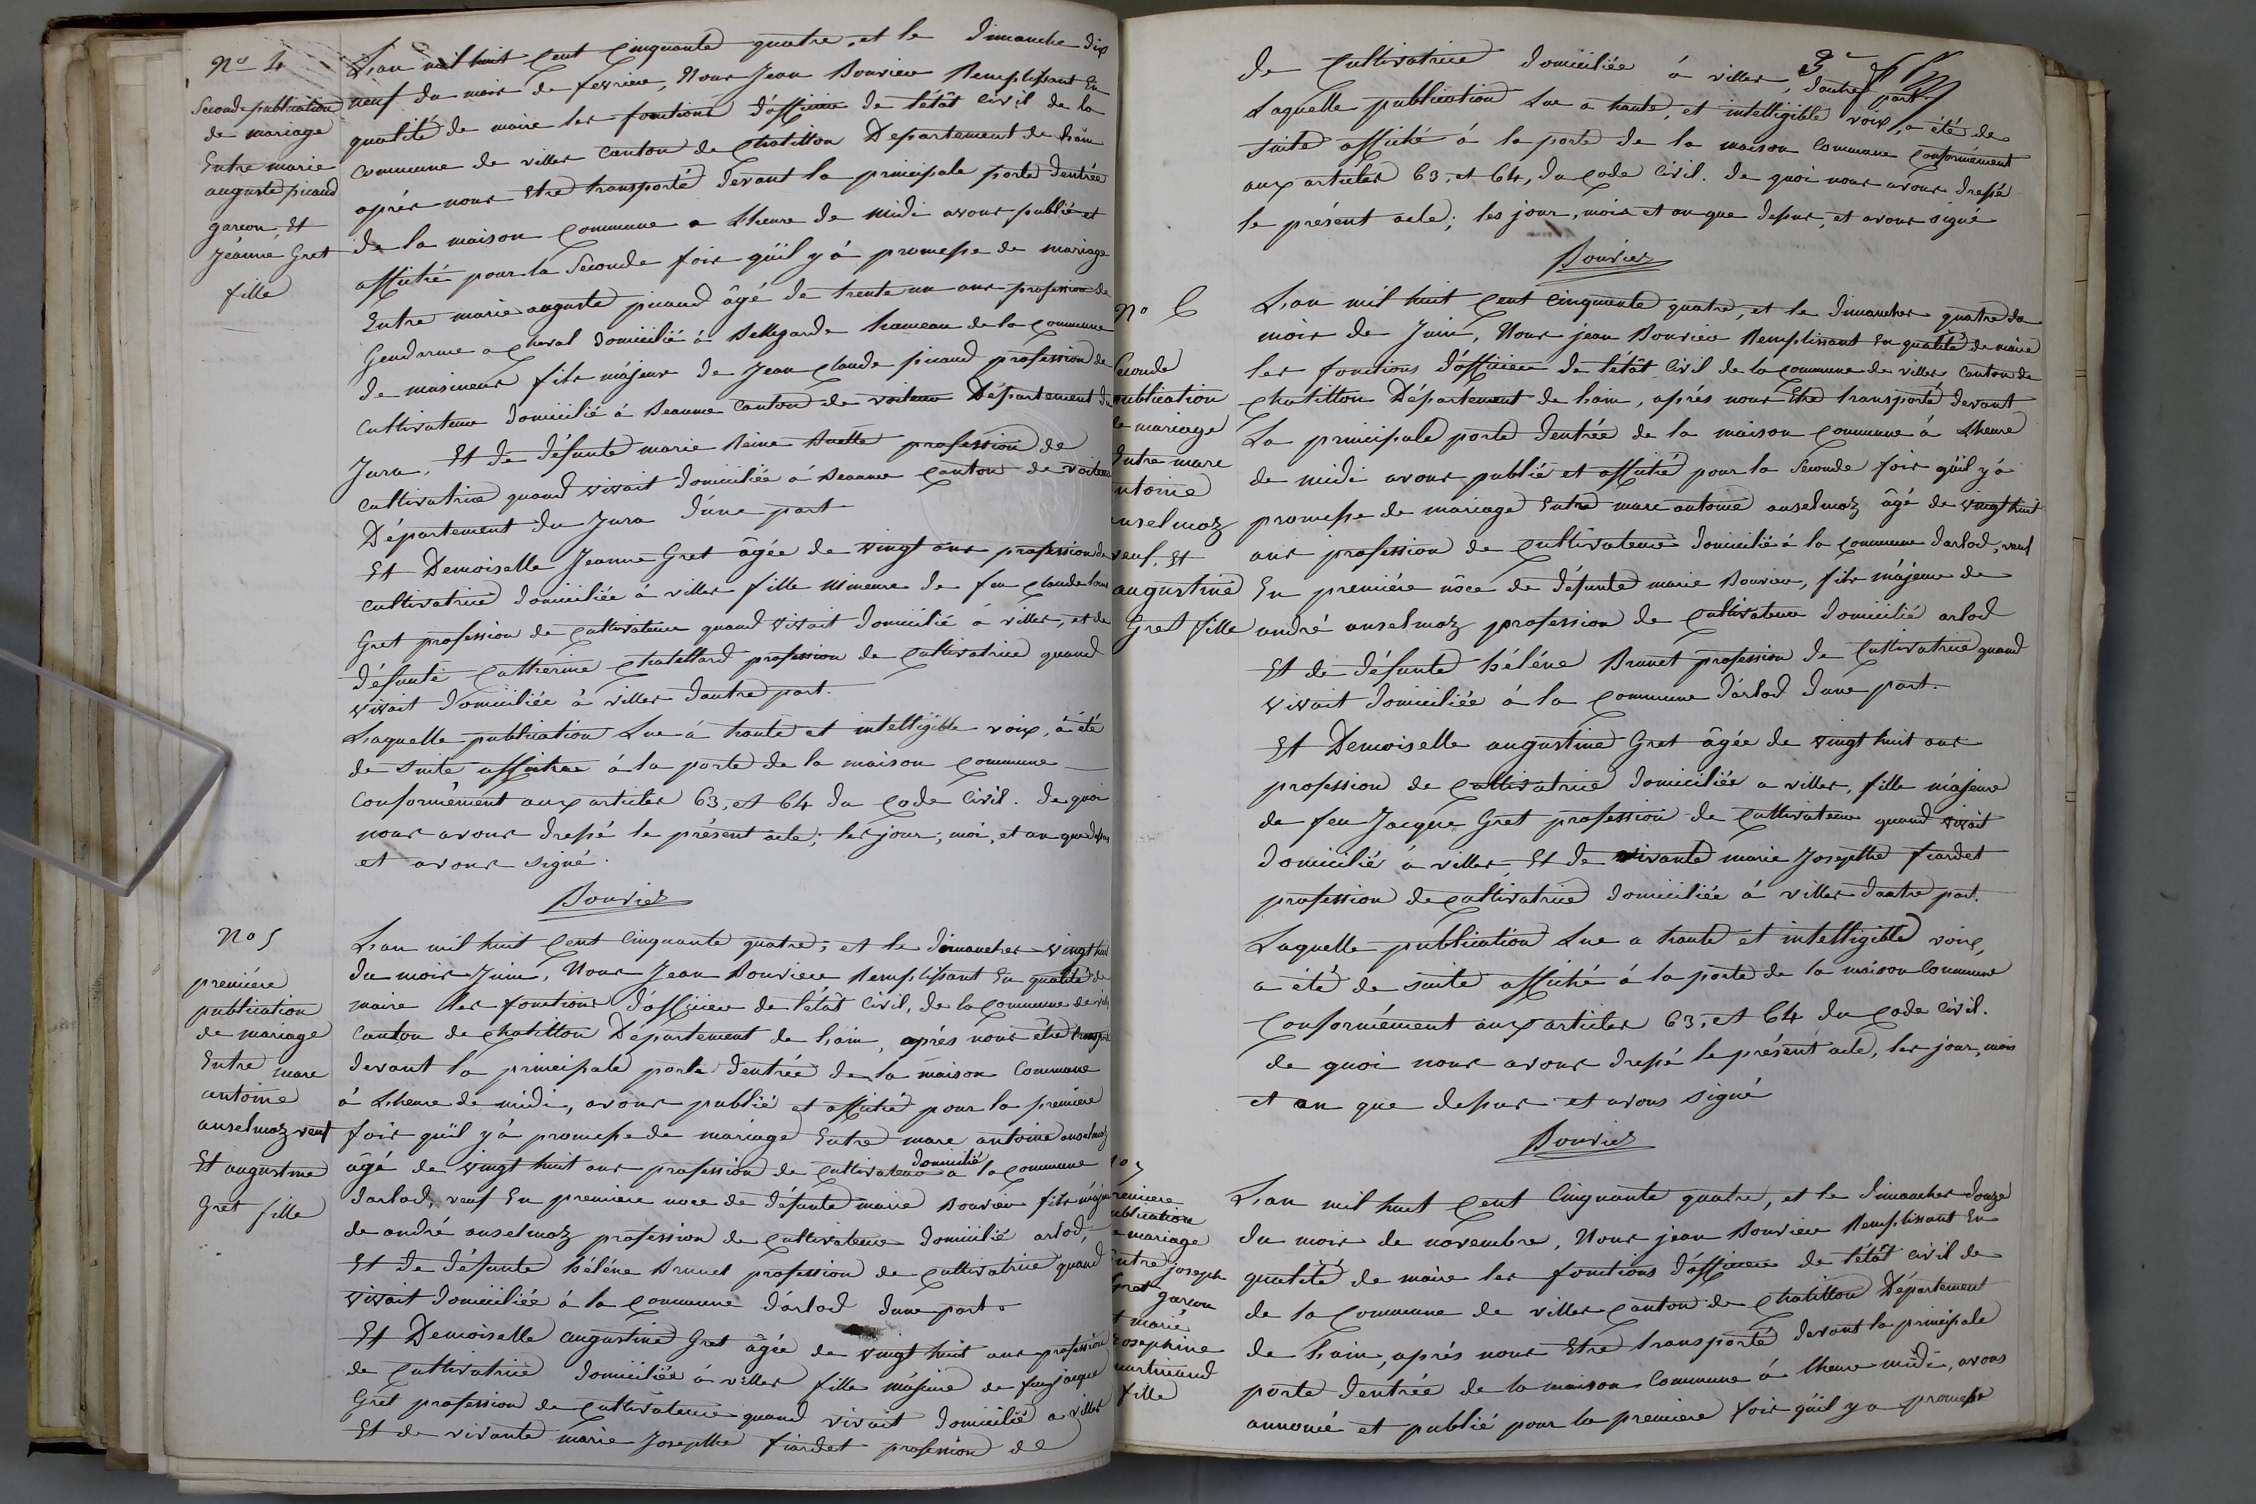 No 4
Seconde publication
de mariage
Entre marie
auguste picaud
garcon, Et
Jéanne Gret
fille
L'an mil huit Cent Cinquante quatre, et le dimanche dix
neuf du mois de fevriere, Nous Jean Bouvier Remplissant En
qualité de maire les fonctions d'officier de l'état Civil de la
Commune de villes Canton de Chatillon Departement de L'ain
aprés nous Etre transporté devant la principale porte d'entrée
de la maison Commune a L'heure de midi avons publié et
affiché pour la Seconde fois qu'il y a promesse de mariage
Entre marie auguste picaud âgé de trente un ans profession de
Gendarme a Cheval domicilié à Bellegarde hameau de la Commune
de musinens fils majeur de Jean Claude picaud profession de
Cultivateur domicilié à Beaume Canton de voiteur Département du
Jura, Et de défunte marie Reine Buelle profession de
Cultivatrice quand vivait domiciliée á Beaume Canton de voiteur
Département du Jura d'une part
Et Demoiselle Jeanne Gret âgée de vingt ans profession de
Cultivatrice domiciliée à villes fille Mineure de feu Claude Louis
Gret profession de Cultivateur quand vivait domicilié à villes, et de
défunte Catherine Chatellard profession de Cultivatrice quand
vivait domiciliée à villes d'autre part.
Laquelle publication Lue á haute et intelligible voix, à été
de suite affichee á la porte de la maison Commune
Conformément aux articles 63, et 64 du Code Civil. de quoi
nous avons dressé le présent acte, les jour, moi, et an que dessus
et avons signé.
Bouvier
No 5
premiére
publication
de mariage
Entre marc
antoine
anselmoz veuf
Et augustine
Gret fille
L'an mil huit Cent Cinquante quatre, et le dimanches vingt huit
du mois Juin, Nous Jean Bouvier Remplissant En qualité de
maire les fonctions d'officier de l'état Civil, de la Commune de villes
Canton de Chatillon Département de L'ain, aprés nous être transporté
devant la principale porte d'entrée de la maison Commune
á L'heure de midi, avons publié et affiché pour la premiere
fois qu'il y à promesse de mariage Entre marc antoine anselmoz
âgé de vingt huit ans profession de Cultivateur domicilié a la Commune
d'arlod, veuf En premiere noce de défunte marie Bouvier fils majeur
de andré anselmoz profession de Cultivateur domicilié arlod,
Et de défunte héléne Brunet profession de Cultivatrice quand
vivait domiciliée à la Commune d'arlod d'une part.
Et Demoiselle augustine Gret âgée de vingt huit ans profession
de Cultivatrice domiciliée à villes fille májeure de feu jacque
Gret profession de Cultivateur quand vivait domicilié a villes
Et de vivante marie Josepthe fiardet profession de
3e
de Cultivatrice domiciliée à villes, d'autre part.
Laquelle publication Lue a haute, et intelligible voix, a été de
suite affiché á la porte de la maison Commune Conformément
aux articles 63, et 64, du Code Civil. de quoi nous avons dressé
le présent acte, les jour, mois et an que dessus, et avons signé
Bouvier
No 6
Seconde
publication
de mariage
Entre marc
antoine
anselmoz
veuf, Et
augustine
Gret fille
L'an mil huit Cent Cinquante quatre, et le dimanches quatre du
mois de Juin, Nous jean Bouvier Remplissant En qualité de maire
les fonctions d'officier de l'étât Civil de la Commune de villes Canton de
Chatillon Département de L'ain, aprés nous Etre transporté devant
La principale porte d'entrée de la maison Commune à L'heure
de midi avons publié et affiché pour la Seconde fois qu'il y à
promesse de mariage Entre marc antoine anselmoz âgé de vingt huit
ans profession de Cultivateur domicilié à la Commune d'arlod, veuf
En premiére nôce de défunte marie Bouvier, fils májeur de
andré anselmoz profession de Cultivateur domicilié arlod
Et de défunte héléne Brunet profession de Cultivatrice quand
vivait domiciliée à la Commune d'arlod d'une part.
Et Demoiselle augustine Gret âgée de vingt huit ans
profession de Cultivatrice domiciliée a villes, fille májeure
de feu Jacque Gret profession de Cultivateur quand vivait
domicilié à villes, Et de vivante marie Josepthe fiardet
profession de Cultivatrice domiciliée à villes d'autre part.
Laquelle publication Lue a haute et intelligible voix,
a été de suite affiché à la porte de la maison Commune
Conformément aux articles 63, et 64 du Code Civil.
de quoi nous avons dressé le présent acte, les jour, mois
et an que dessus et avons signé
Bouvier
No 7
premiere
publication
de mariage
Entre joseph
Gret garcon
Et marie
Josephine
martinand
fille
L'an mil huit Cent Cinquante quatre, et le dimanches douze
du mois de novembre, Nous jean Bouvier Remplissant En
qualité de maire les fonctions d'officier de l'étât Civil de
de la Commune de villes Canton de Chatillon Département
de L'ain, aprés nous Etre transporté devant la principale
porte d'entrée de la maison Commune á l'heure midi, avons
annoncé et publié pour la premiere fois qu'il y a promesse